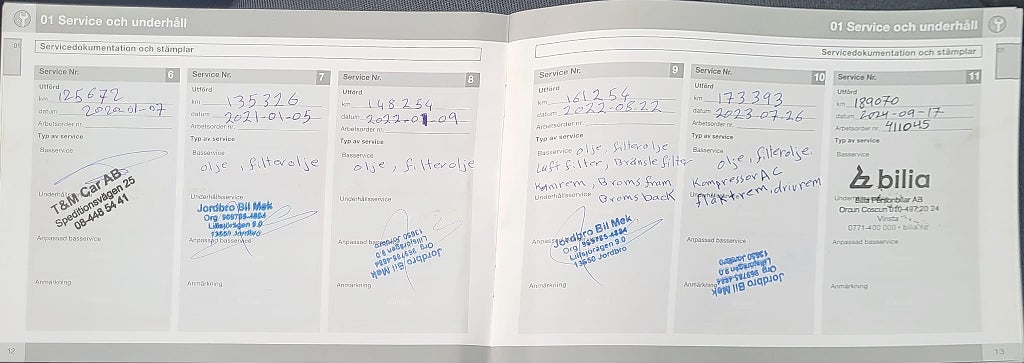 01 Service och underhåll
Servicedokumentation och stämplar
01
Service Nr. 6
Utförd
km 125672
datum 2020-01-07
Arbetsorder nr.
Typ av service
Basservice
Underhållsservice
T&M Car AB
Speditionsvägen 25
08-448 54 41
Anpassad basservice
Anmärkning
12
Service Nr. 7
Utförd
km 135326
datum 2021-01-05
Arbetsorder nr.
Typ av service
Basservice
olje, filterolje
Underhållsservice
Jordbro Bil Mek
Org 969765-4884
Lillsjörägen 9.0
13650 Jordbro
Anpassad basservice
Anmärkning
Service Nr. 8
Utförd
km 148254
datum 2022-01-09
Arbetsorder nr.
Typ av service
Basservice
olje, filterolje
Underhållsservice
Jordbro Bil Mek
Org 969765-4884
Lillsjörägen 9.0
13650 Jordbro
Anpassad basservice
Anmärkning
01 Service och underhåll
Servicedokumentation och stämplar
01
Service Nr. 9
Utförd
km 161254
datum 2022-08-22
Arbetsorder nr.
Typ av service
Basservice olje, filterolje
Luft filter, Bränsle filter
Kamrem, Broms fram
Underhållsservice Broms back
Jordbro Bil Mek
Org 969765-4884
Lillsjörägen 9.0
13650 Jordbro
Anpassad basservice
Anmärkning
Service Nr. 10
Utförd
km 173393
datum 2023-07-26
Arbetsorder nr.
Typ av service
Basservice
olje, filterolje.
Kompressor AC
fläktrem, drivrem
Underhållsservice
Anpassad basservice
Jordbro Bil Mek
Org 969765-4884
Lillsjörägen 9.0
13650 Jordbro
Anmärkning
Service Nr. 11
Utförd
km 189070
datum 2024-09-17
Arbetsorder nr. 411045
Typ av service
Basservice
bilia
Underhållsservice
Bilia Personbilar AB
Orcun Coscun 010-497 20 24
Vinsta
0771-400 000 - bilia.se
Anpassad basservice
Anmärkning
13